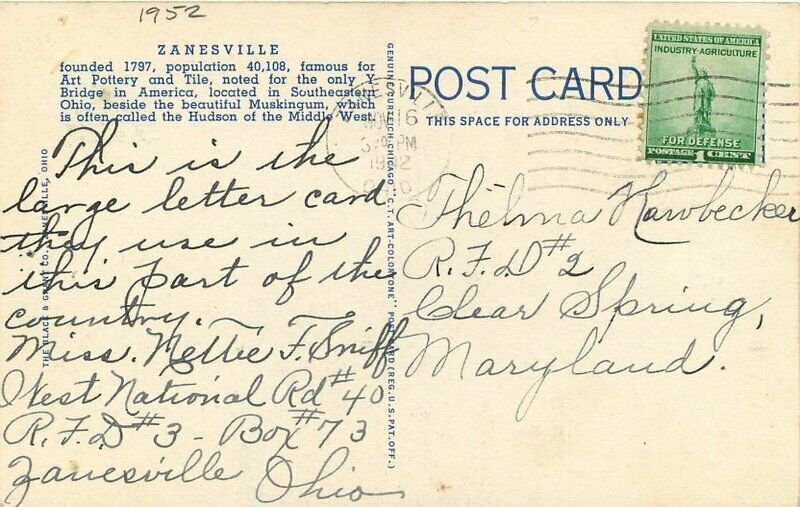 1952
ZANESVILLE
founded 1797, population 40,108, famous for
Art Pottery and Tile, noted for the only Y
Bridge in America, located in Southeastern
Ohio, beside the beautiful Muskingum, which
is often called the Hudson of the Middle West.
This is the
large letter card
they use in
this part of the
country.
Miss. Nettie F. Sniff
West National Rd #40
R.F.D #3 - Box #73
Zanesville Ohio
THE BLACK & GRANT CO., ZANESVILLE, OHIO
GENUINE CURTEICH-CHICAGO "C.T. ART-COLORTONE" POST CARD (REG. U.S. PAT. OFF.)
POST CARD
THIS SPACE FOR ADDRESS ONLY
ZANESVILLE
NOV 16
PM
OHIO
UNITED STATES OF AMERICA
INDUSTRY-AGRICULTURE
FOR DEFENSE
POSTAGE 1 CENT
Thelma Hawbecker
R.F.D #2
Clear Spring,
Maryland.